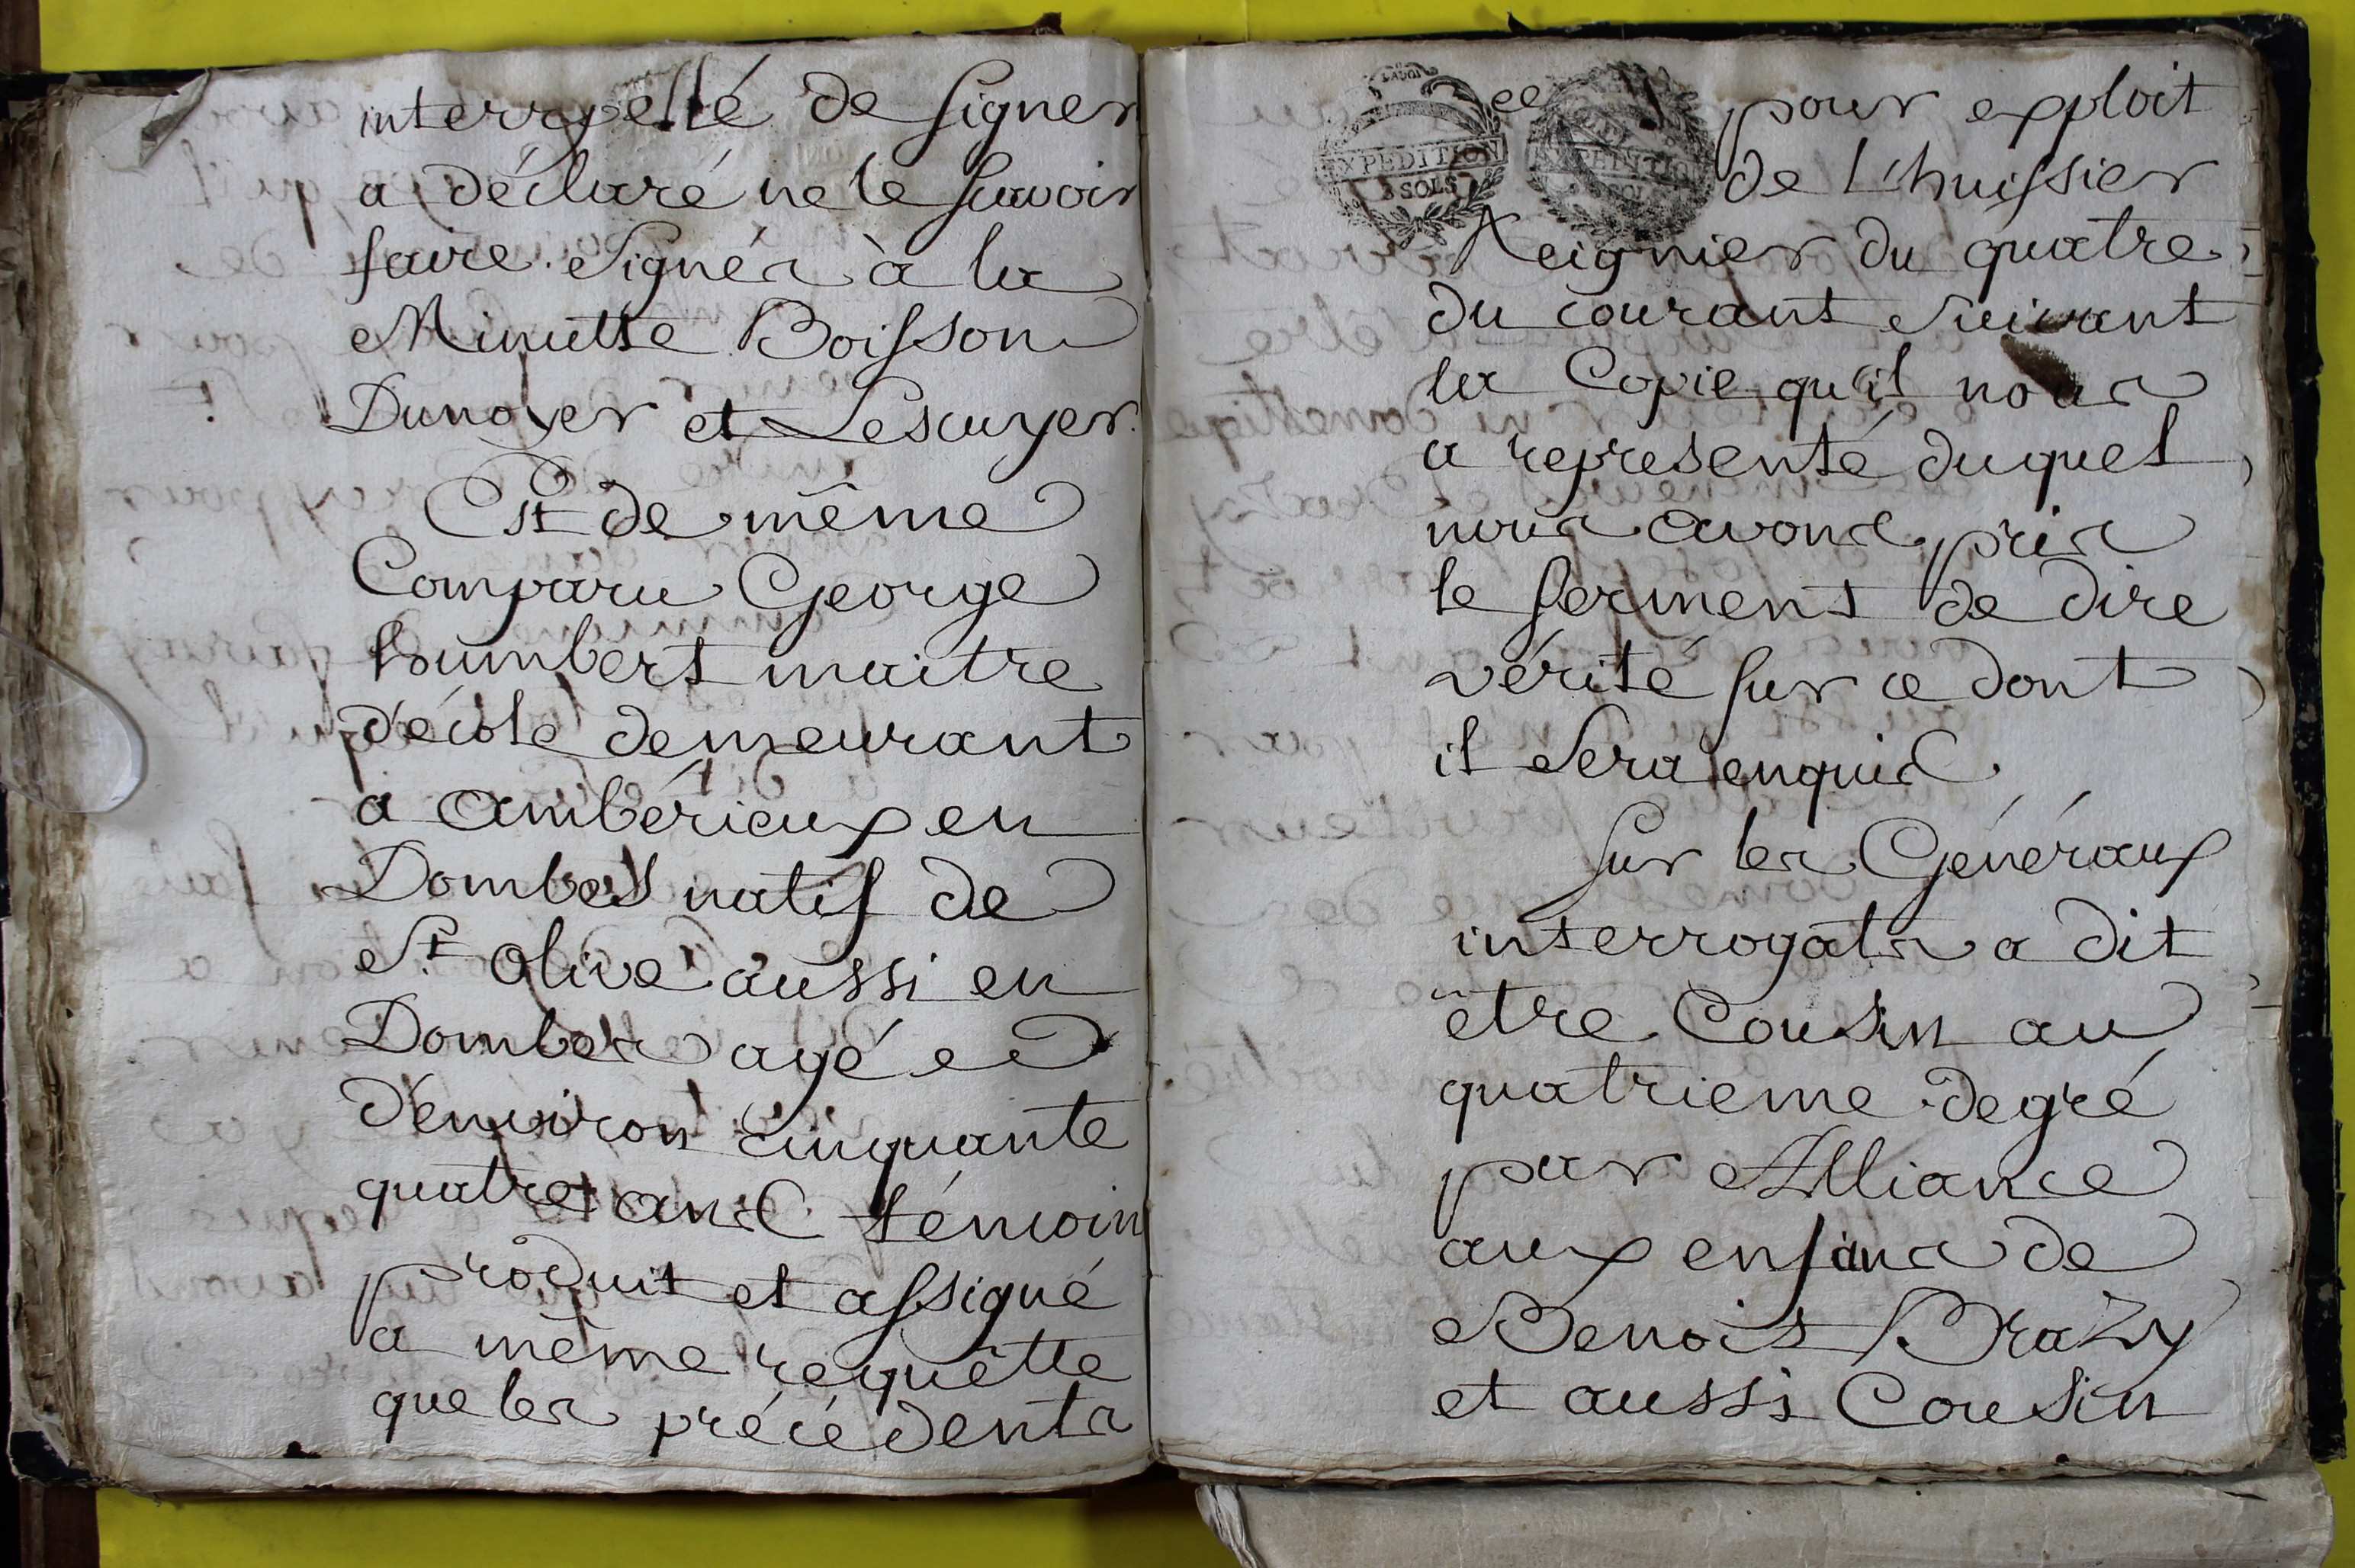 interpellé de signer
a déclaré ne le scavoir
faire. Signés à la
Minutte Boisson
Dunoyer et Lescuyer.
Est de même
Comparu George
humbert maitre
d'école demeurant
a ambérieux en
Dombes natif de
St. Olive aussi en
Dombes agé
d'environ cinquante
quatre ans témoin
produit et assigné
a même requêtte
que les précédents
EXPEDITION
8 SOLS
EXPEDITION
pour exploit
de L'huissier
Reignier du quatre
du courant suivant
la Copie qu'il nous
a representé duquel
nous avons pris
le serment de dire
vérité sur ce dont
il sera enquis.
Sur les Généraux
interrogats a dit
être Cousin au
quatrieme degré
par Alliance
aux enfans de
Benoit Brazy
et aussi Cousin